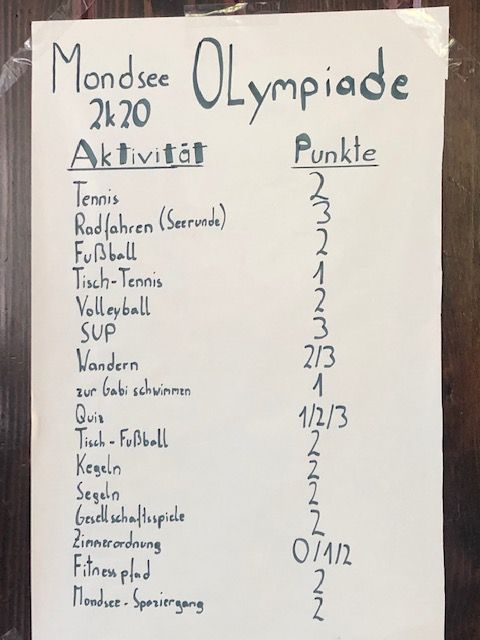 Mondsee OLympiade
2k20
Aktivität Punkte
Tennis 2
Radfahren (Seerunde) 3
Fußball 2
Tisch-Tennis 1
Volleyball 2
SUP 3
Wandern 2/3
zur Gabi schwimmen 1
Quiz 1/2/3
Tisch-Fußball 2
Kegeln 2
Segeln 2
Gesellschaftsspiele 2
Zimmerordnung 0/1/2
Fitnesspfad 2
Mondsee-Spaziergang 2